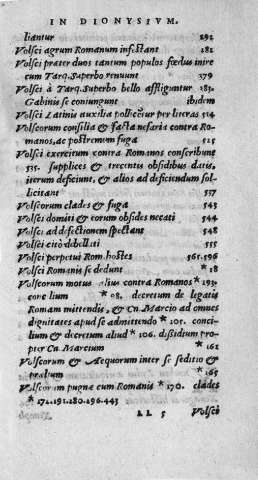 IN DIONYSIVM.
liantur 292
Volsci agrum Romanum infestant 281
Volsci præter duos tantum populos fœdus inire
cum Tarq. Superbo renuunt 379
Volsci à Tarq. Superbo bello affliguntur 383.
Gabinis se coniungunt ibidem
Volsci Latinis auxilia pollicētur per literas 514
Volscorum consilia & facta nefaria contra Ro-
manos, ac postremum fuga 525
Volsci exercitum contra Romanos conscribunt
535. supplices & trecentis obsidibus datis,
iterum deficiunt, & alios ad deficiendum sol-
licitant 537
Volscorum clades & fuga 543
Volsci domiti & eorum obsides necati 544
Volsci ad defectionem spectant 548
Volsci citò debellati 555
Volsci perpetui Rom. hostes 561.596
Volsci Romanis se dedunt *18
Volscorum motus alius contra Romanos *93.
lium *98. decretum de legatis
Romam mittendis, & Cn. Marcio ad omnes
dignitates apud se admittendo *105. conci-
lium & decretum aliud *106. dissidium pro-
pter Cn. Marcium *161
Volscorum & Aequorum inter se seditio &
prælium *165
Volscorum pugnæ cum Romanis *170. clades
*172.191.280.296.443
LL 5 Volsci